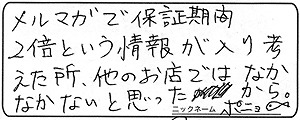 メルマガで保証期間
2倍という情報が入り考
えた所、他のお店ではなか
なかないと思ったから。
ニックネーム ポニョ